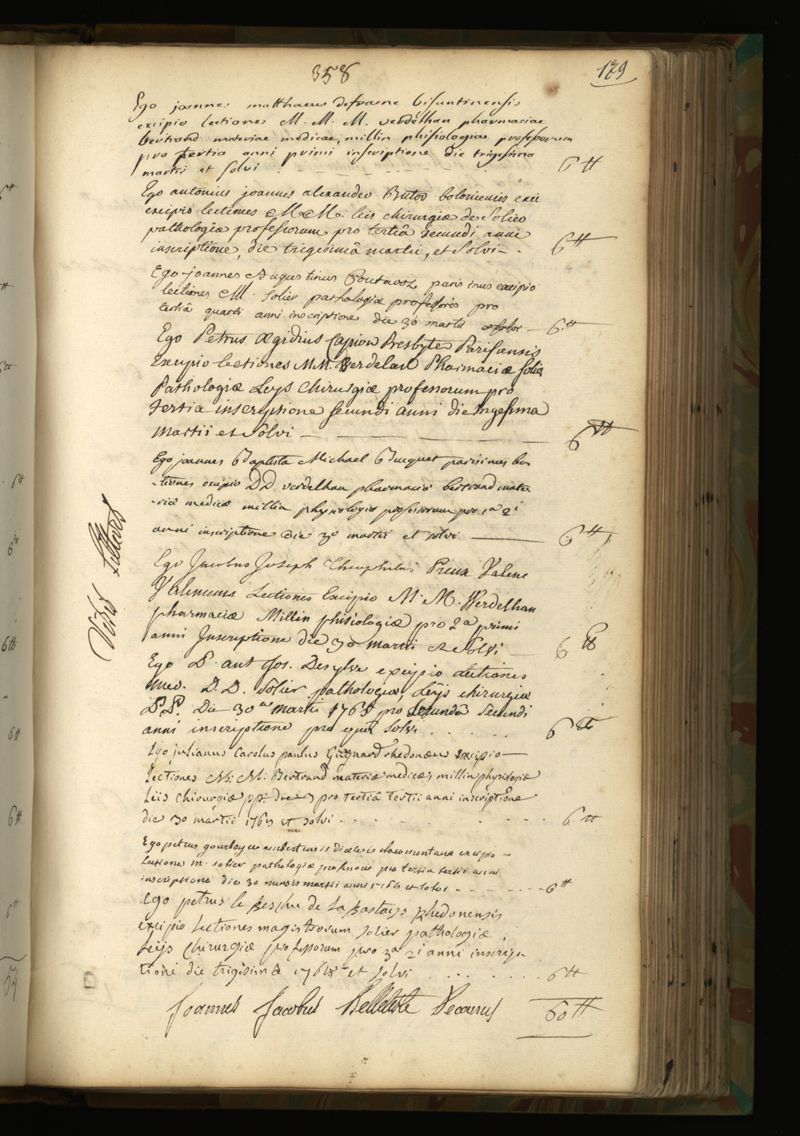 358
179
Ego joannes matthaeus defrasne bisuntinensis
excipio lectiones M. M. M. verdelhan pharmaciae
bertrand materiae medicae, millin phisiologiae professorum
pro tertia anni primi inscriptione die trigesima
martii et solvi 6 ₶
Ego antonius joannes alexander Butor boloniensis
excipio lectiones M.M. leis chirurgiæ de Solier
pathologiæ professorum pro tertiâ secundi anni
inscriptione, die trigesimâ martii, et solvi 6 ₶
Ego joannes Augustinus parisinus excipio
lectiones M. solier pathologiæ professoris pro
tertiâ quarti anni inscriptione die 30 martii 6 ₶
Ego Petrus Ægidius Capion Presbyter Parisiensis
Excipio lectiones M.M. Verdelan Pharmaciæ Solier
Pathologiæ Leys Chirurgiæ professorum pro
tertia inscriptione secundi anni die trigesima
Martii et Solvi 6 ₶
Ego joannes Baptista Michael Bucquet parisinus lec
tiones excipio DD verdelhan pharmaciæ bertrand mate
riæ medicæ millin physiologiæ professorum pro 1a 2i
anni inscriptione die 30 martii et solvi 6 ₶
Ego Jacobus Joseph Theophilus
Lectiones Excipio M. M. Werdelhan
pharmaciæ Millin phisiologiæ pro 2a primi
anni Inscriptione die 30 martii et Solvi 6 ₶
Ego P. ant Jos. Desylve excipio lectiones
med. D.D. Solier pathologiæ, Leijs chirurgiæ
P.P. Die 30a martii 1765 pro secundâ secundi
anni inscriptione pro quâ solvi 6 ₶
Ego julianus Carolus paulus rhedonæus excipio
lectiones M. M. Bertrand materiæ medicæ, millin physiologiæ
Leis chirurgiæ pp. pro tertiâ tertii anni inscriptione
die 30 martii 1765 et solvi 6 ₶
Ego petrus claromontanus excipio
lectiones m. solier pathologiæ professoris pro tertia tertii anni
inscriptione die 30 mensis martii anni et solvi 6 ₶
Ego petrus le de la rhedonensis
excipio lectiones magistrorum solier pathologiæ,
Leijs Chirurgiæ professorum pro 3a 2i anni inscrip
tioni die trigesimâ et solvi 6 ₶
Joannes Jacobus Belleteste Decanus 60 ₶